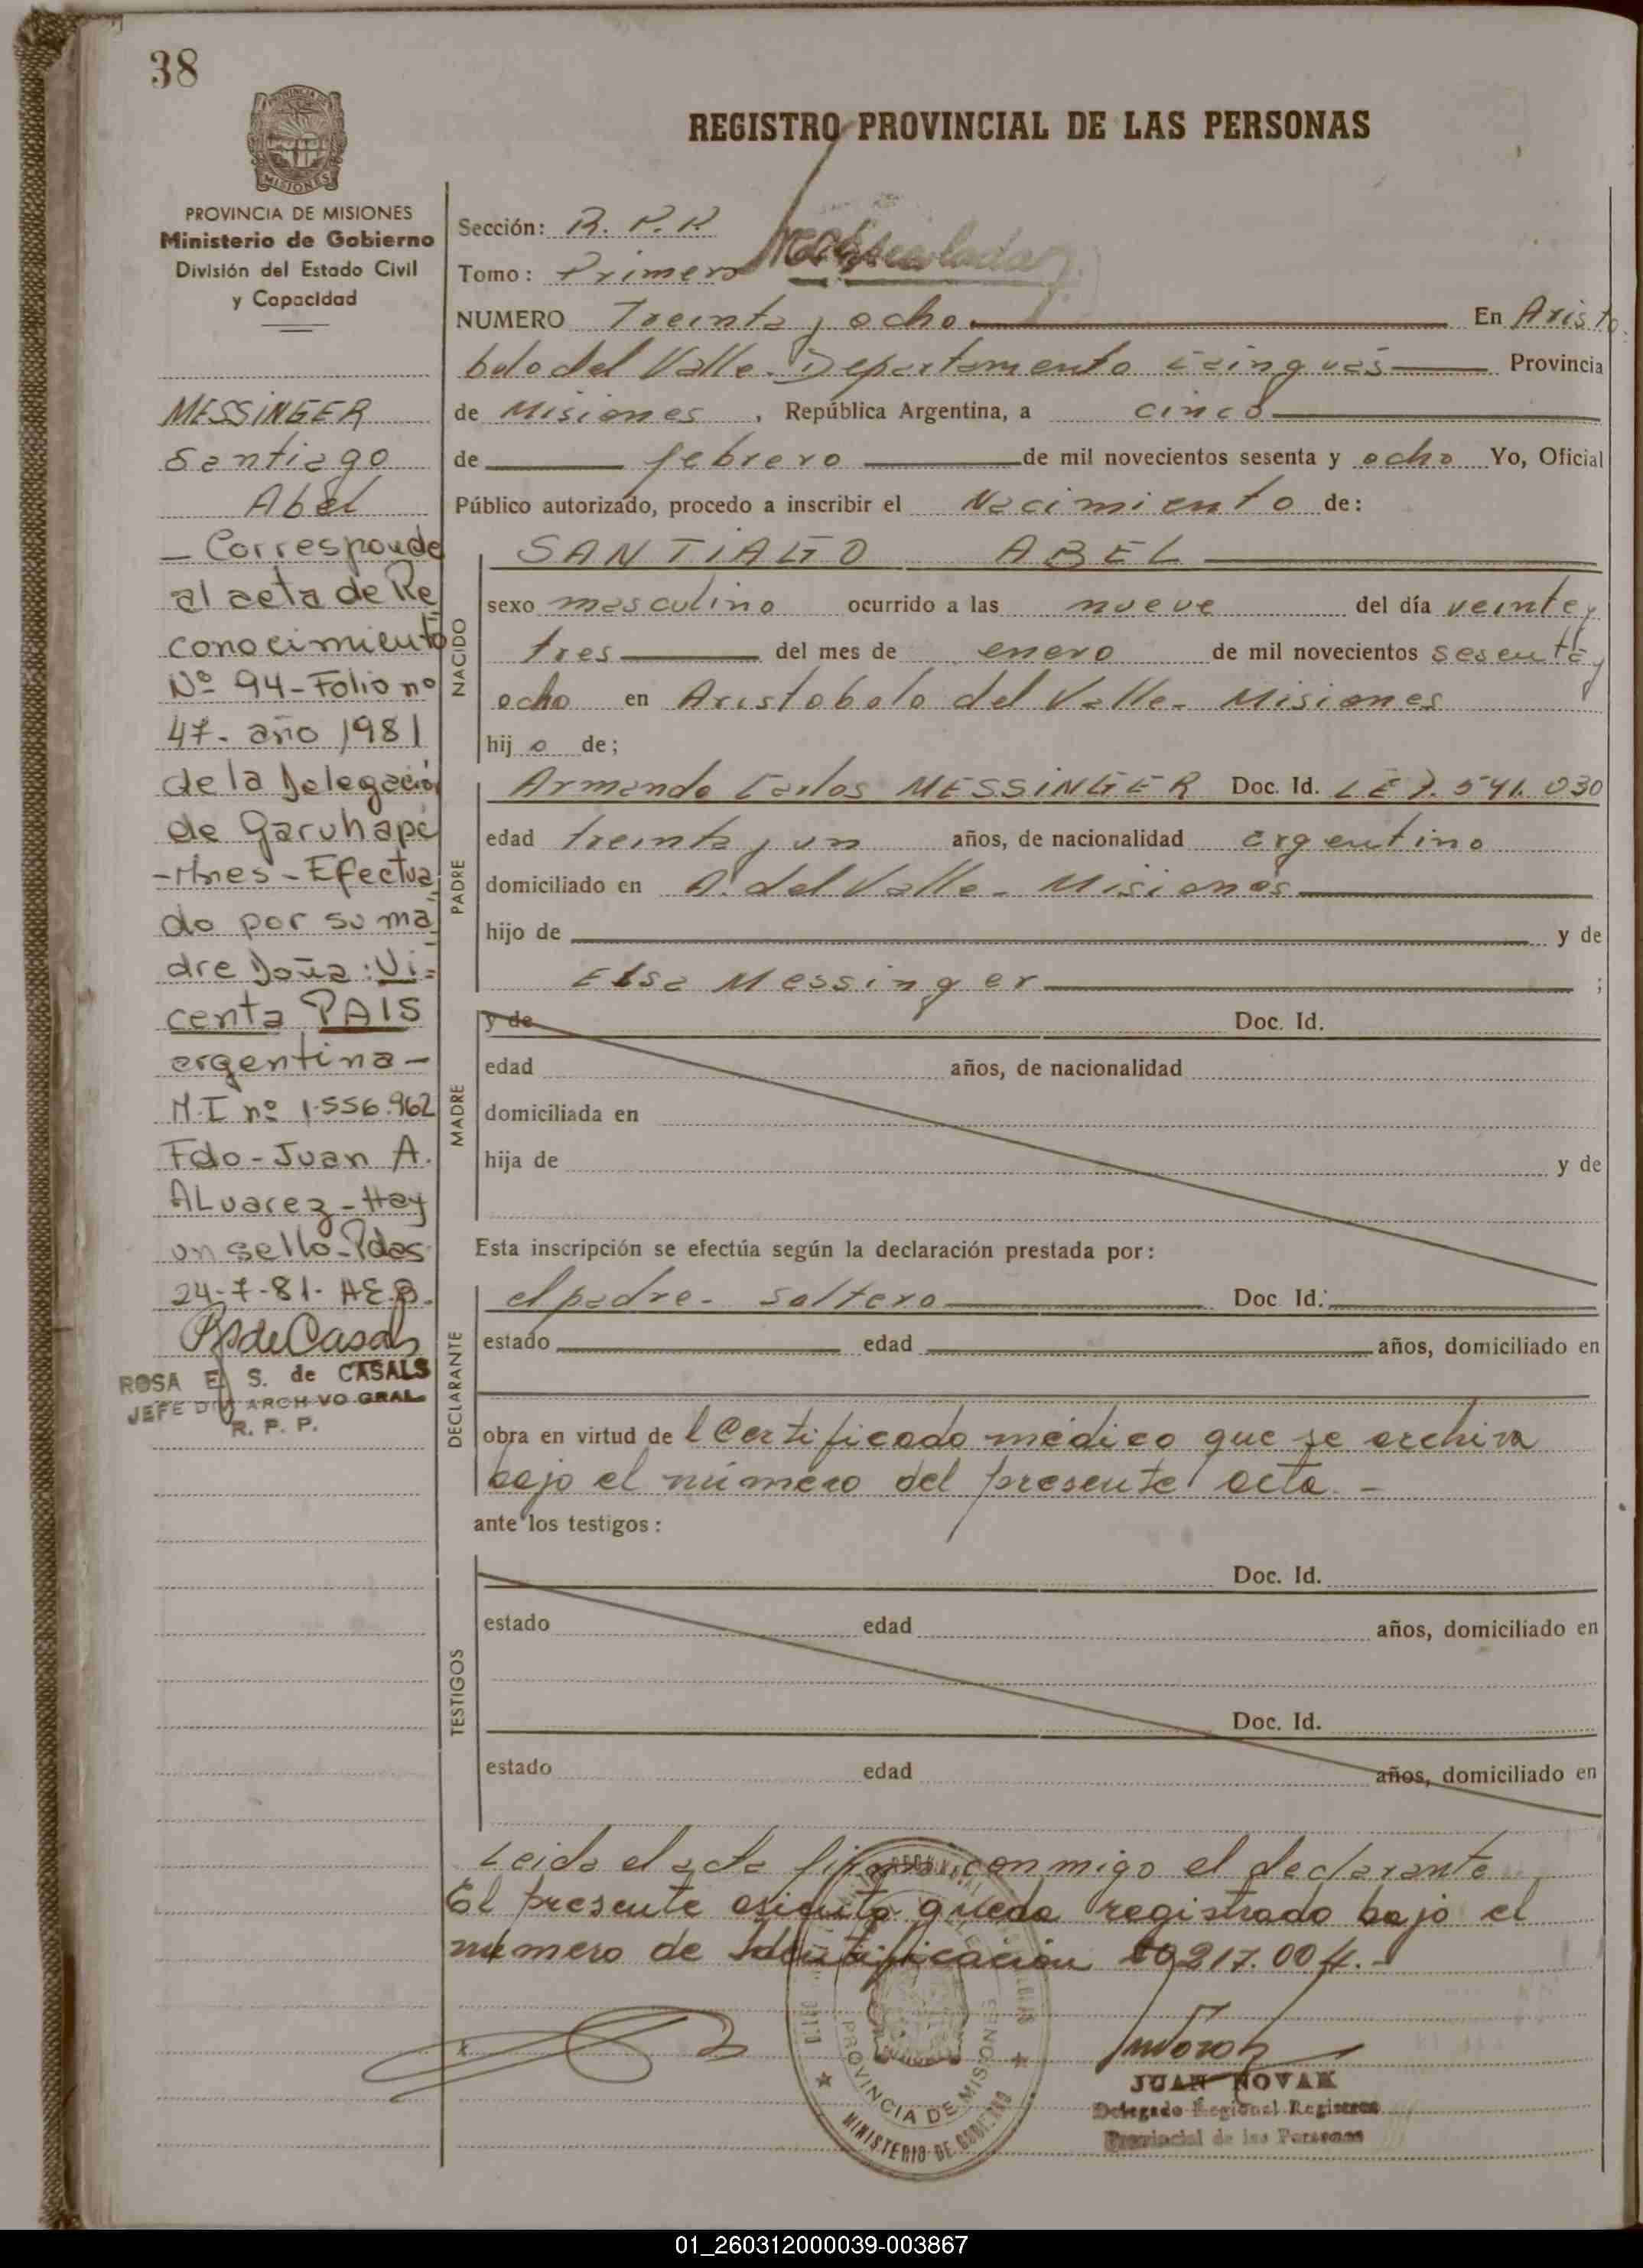 38
MISIONES
REGISTRO PROVINCIAL DE LAS PERSONAS
PROVINCIA DE MISIONES
Ministerio de Gobierno
División del Estado Civil
y Capacidad
MESSINGER
Santiago
Abel
- Corresponde
al acta de Re
conocimiento
Nº 94 - Folio nº
47 - año 1981
de la Delegación
de Garuhapé
-Mnes - Efectua
do por su ma
dre Doña: Vi=
centa PAIS
argentina -
M.I nº 1.556.962
Fdo - Juan A.
ALvarez - Hay
un sello - Pdas
24-7-81. A.E.B.
ROSA E. S. de CASALS
JEFE DIV ARCHIVO GRAL
R. P. P.
Sección: R. P. P.
Tomo: Primero
NUMERO Treinta y ocho En Aristo
bulo del Valle - Departamento Cainguás Provincia
de Misiones, República Argentina, a cinco
de febrero de mil novecientos sesenta y ocho Yo, Oficial
Público autorizado, procedo a inscribir el Nacimiento de:
NACIDO
SANTIAGO ABEL
sexo masculino ocurrido a las nueve del día veinte y
tres del mes de enero de mil novecientos sesenta y
ocho en Aristobolo del Valle - Misiones
hijo de;
PADRE
Armando Carlos MESSINGER Doc. Id. LE 7.541.030
edad treinta y un años, de nacionalidad argentino
domiciliado en A. del Valle - Misiones
hijo de y de
Elsa Messinger ;
MADRE
y de Doc. Id.
edad años, de nacionalidad
domiciliada en
hija de y de
Esta inscripción se efectúa según la declaración prestada por:
DECLARANTE
el padre - soltero Doc Id.
estado edad años, domiciliado en
obra en virtud del Certificado médico que se archiva
bajo el número del presente acta. -
ante los testigos:
TESTIGOS
Doc. Id.
estado edad años, domiciliado en
Doc. Id.
estado edad años, domiciliado en
Leida el acta firma conmigo el declarante
El presente asiento queda registrado bajo el
número de Identificación 217.004.-
PROVINCIA DE MISIONES
MINISTERIO DE GOBIERNO
JUAN NOVAK
Delegado Regional Registro
Provincial de las Personas
01_260312000039-003867